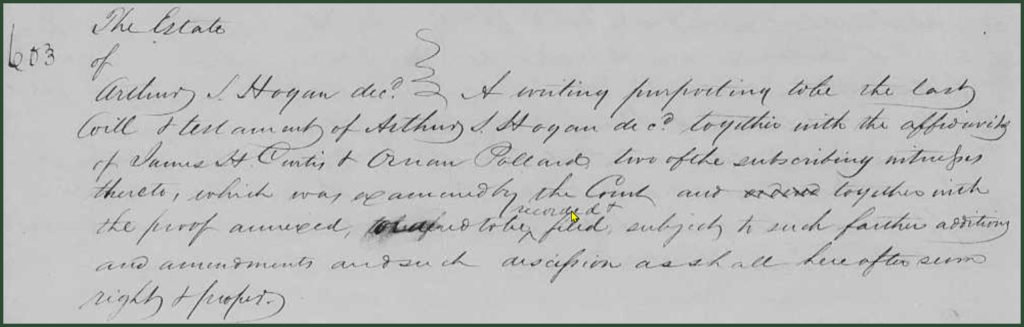 The Estate
603
of
Arthur S. Hogan dec.d A writing purporting tobe the last
Will & testament of Arthur S. Hogan decd together with the affidavits
of James H Curtis & Orvan Pollard two of the subscribing witnesses
thereto, which was examined by the Court and together with
recorded &
the proof annexed, to be filed, subject to such farther additions
and amendments and such as shall hereafter seem
right & proper.